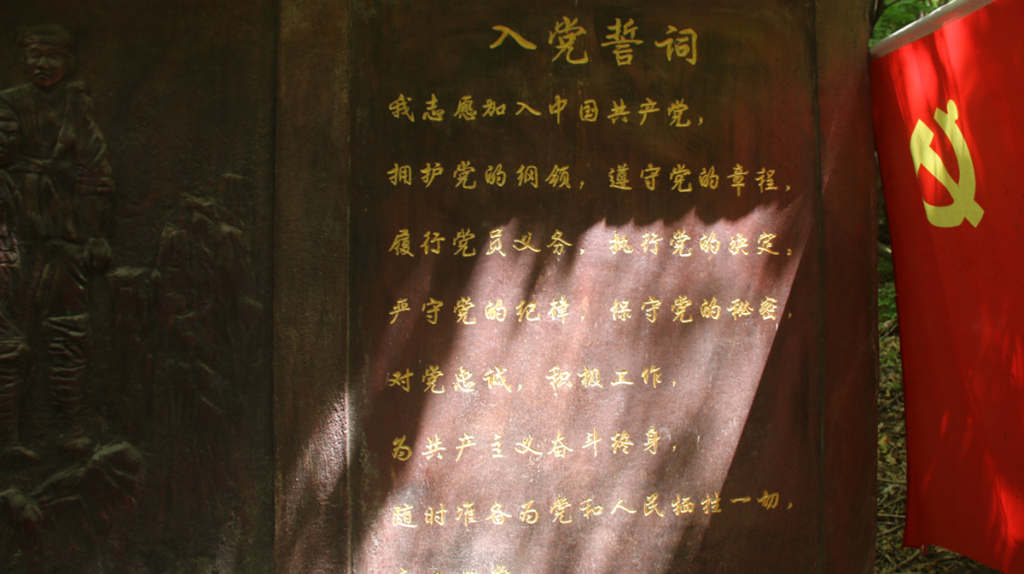 入党誓词
我志愿加入中国共产党，
拥护党的纲领，遵守党的章程，
履行党员义务，执行党的决定，
严守党的纪律，保守党的秘密，
对党忠诚，积极工作，
为共产主义奋斗终身，
随时准备为党和人民牺牲一切，